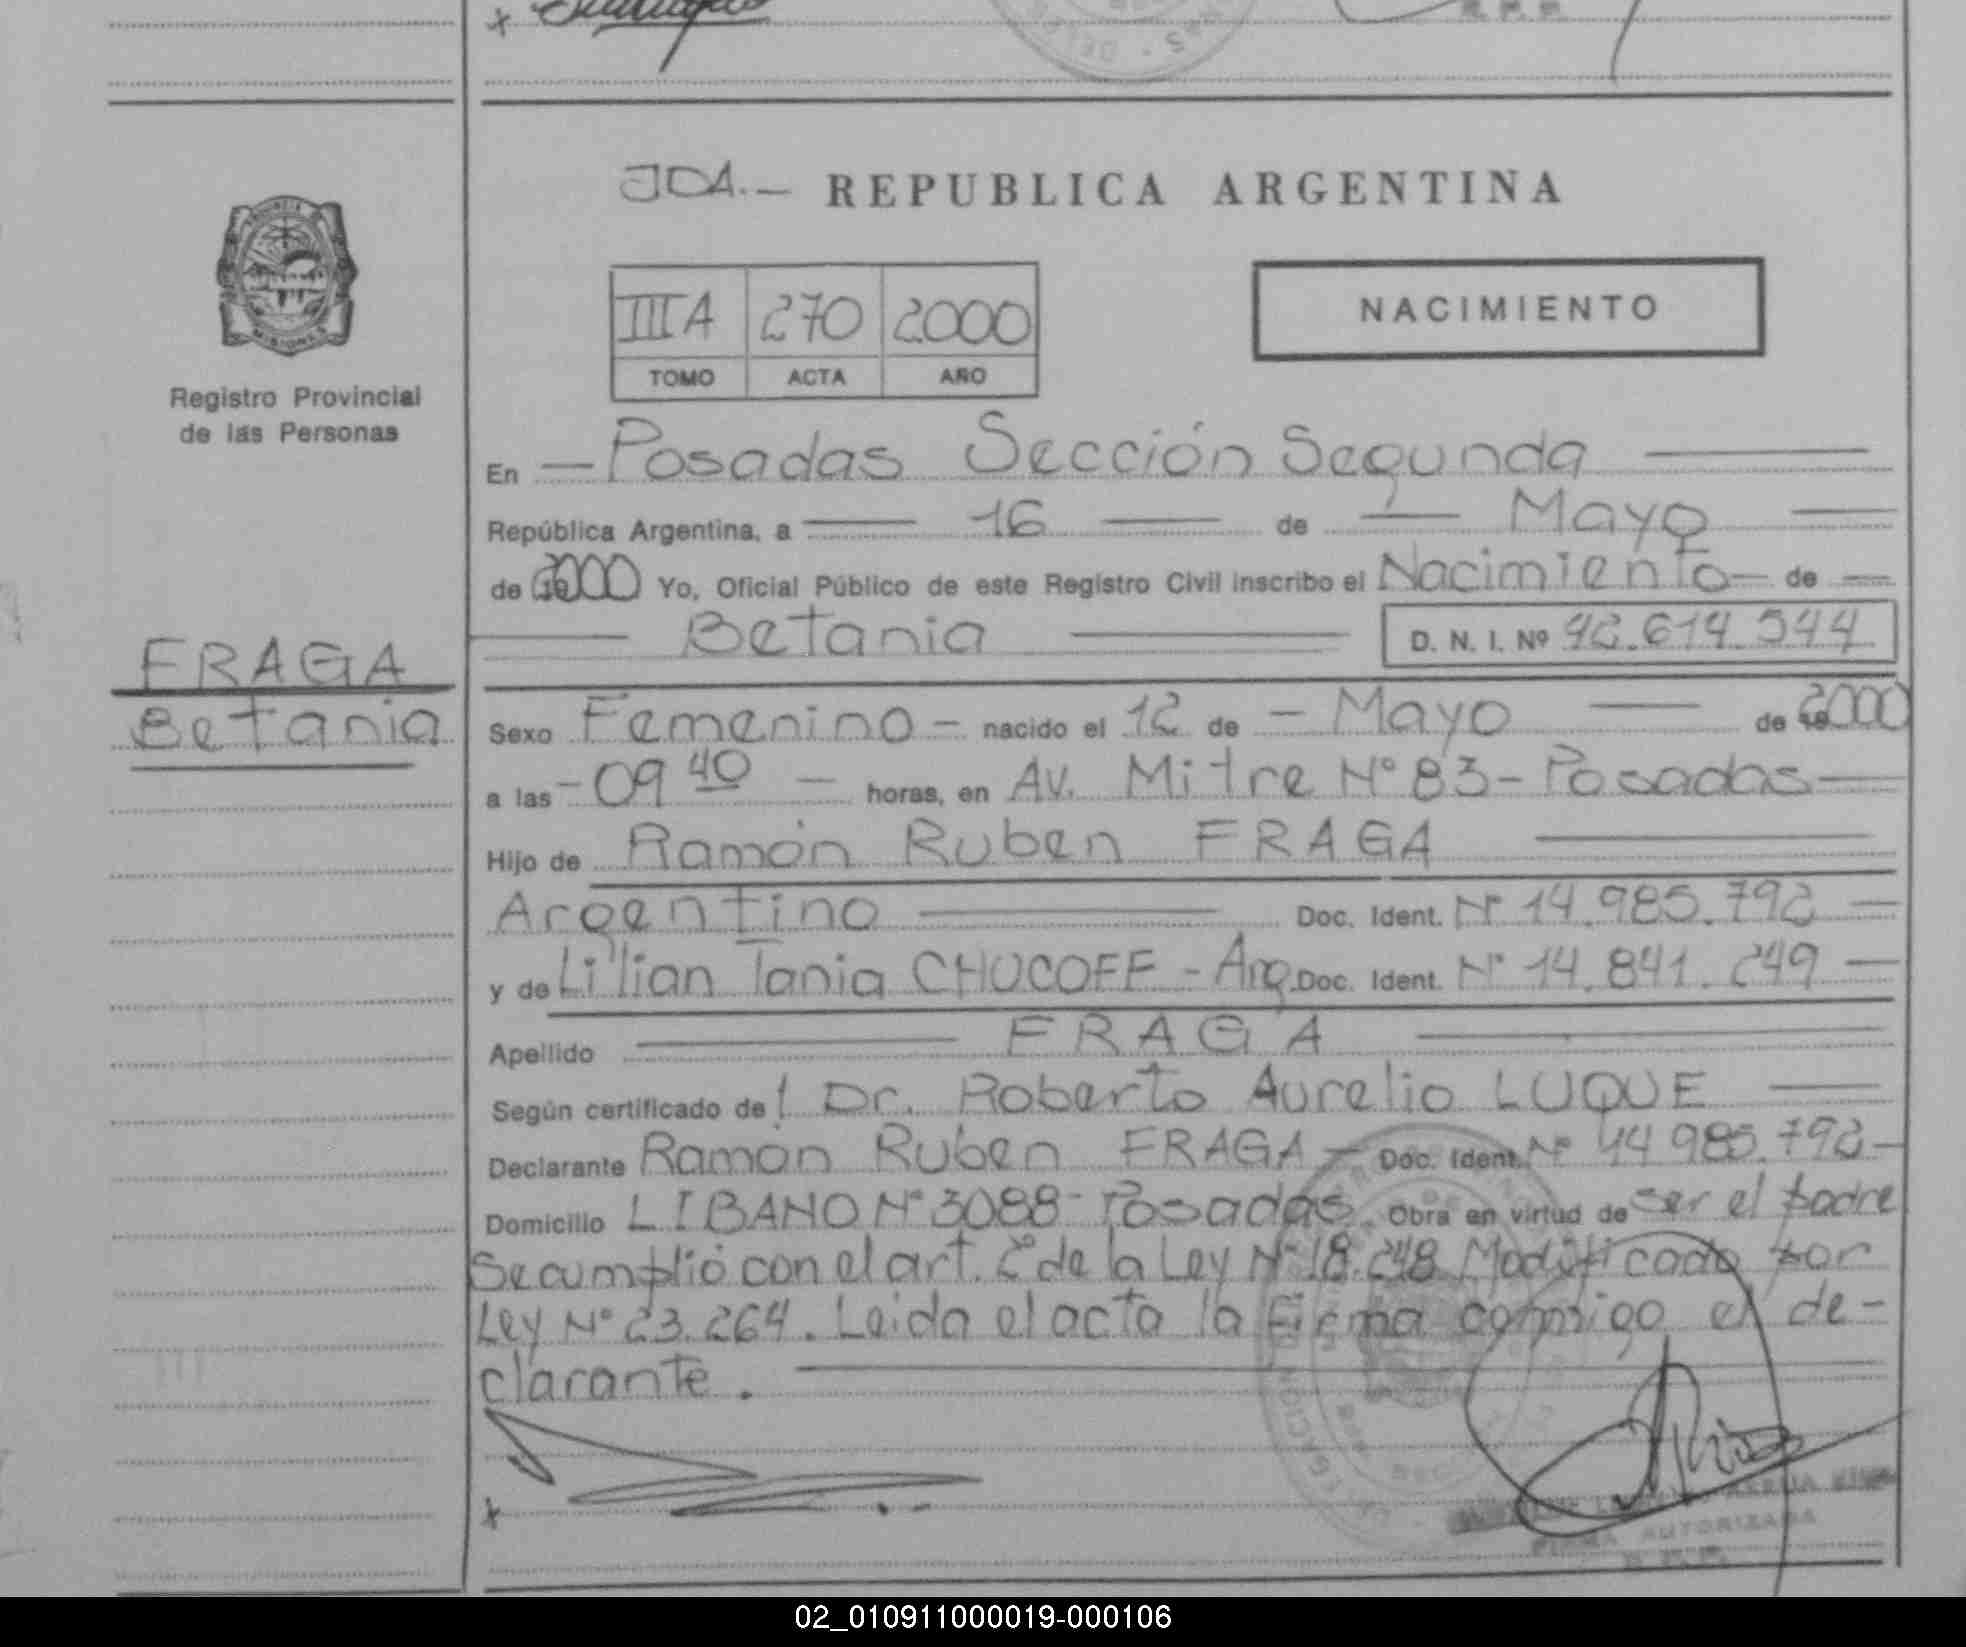 JDA.— REPUBLICA ARGENTINA
MISIONES
Registro Provincial
de las Personas
IIIA 270 2000
TOMO ACTA AÑO
NACIMIENTO
En — Posadas Sección Segunda —
República Argentina, a — 16 — de — Mayo —
de 2000 Yo, Oficial Público de este Registro Civil inscribo el Nacimiento — de —
— Betania — D. N. I. Nº 42.614.544
FRAGA
Betania
Sexo Femenino — nacido el 12 de — Mayo — de 2000
a las — 09 40 — horas, en Av. Mitre Nº 83 - Posadas —
Hijo de Ramón Ruben FRAGA —
Argentino — Doc. Ident. Nº 14.985.792 —
y de Lilian Tania CHUCOFF - Arg. Doc. Ident. Nº 14.841.249 —
Apellido — FRAGA —
Según certificado de l Dr. Roberto Aurelio LUQUE —
Declarante Ramón Ruben FRAGA — Doc. Ident. Nº 14.985.792 —
Domicilio LIBANO Nº 3088 - Posadas. Obra en virtud de ser el padre
Se cumplió con el art. 2º de la Ley Nº 18.248 Modificado por
Ley Nº 23.264. Leida el acta la firma conmigo el de-
clarante. —
x
FIRMA AUTORIZADA
R. P. P.
02_010911000019-000106